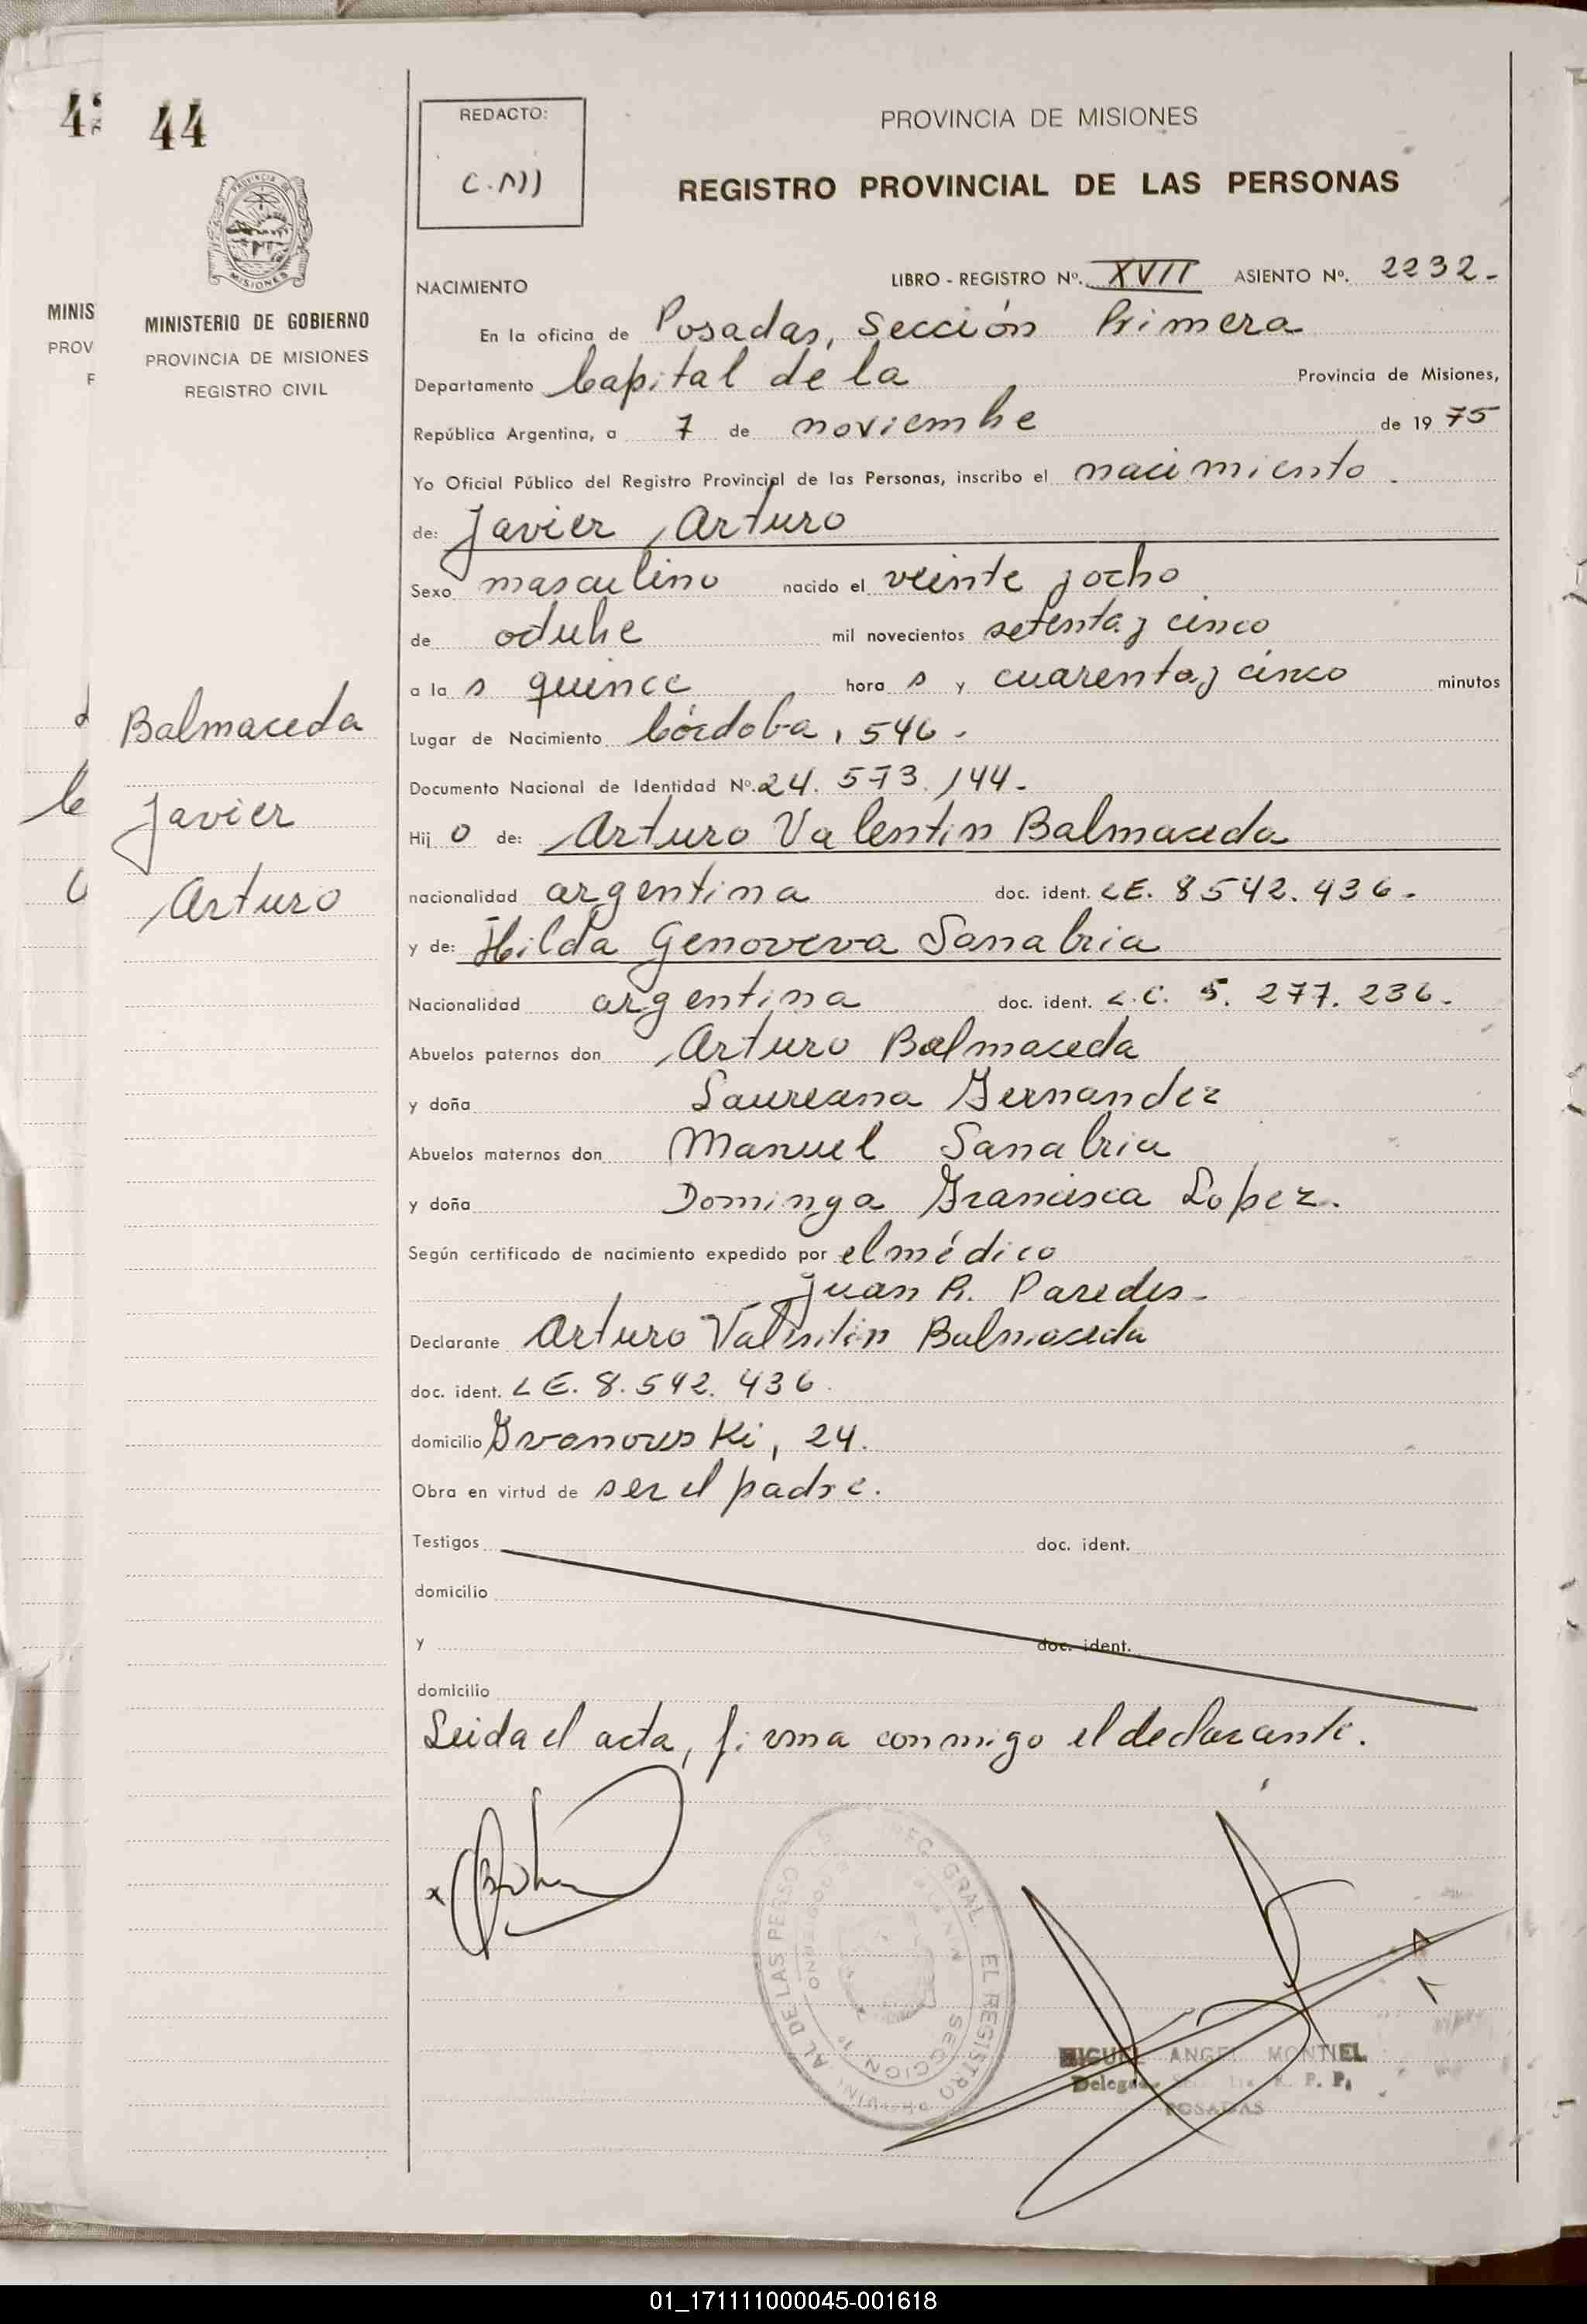 44
MINISTERIO DE GOBIERNO
PROVINCIA DE MISIONES
REGISTRO CIVIL
Balmaceda
Javier
Arturo
MINIS
PROV
REDACTO:
PROVINCIA DE MISIONES
REGISTRO PROVINCIAL DE LAS PERSONAS
NACIMIENTO LIBRO - REGISTRO Nº. XVII ASIENTO Nº. 2232-
En la oficina de Posadas, Sección Primera
Departamento Capital de la Provincia de Misiones,
República Argentina, a 7 de noviembre de 19 75
Yo Oficial Público del Registro Provincial de las Personas, inscribo el nacimiento.
de: Javier Arturo
Sexo masculino nacido el veinte y ocho
de octubre mil novecientos setenta y cinco
a la s quince hora s y cuarenta y cinco minutos
Lugar de Nacimiento Córdoba, 546.
Documento Nacional de Identidad Nº. 24.573.144-
Hij o de: Arturo Valentin Balmaceda
nacionalidad argentina doc. ident. LE. 8542.436.
y de: Hilda Genoveva Sanabria
Nacionalidad argentina doc. ident. L.C. 5.277.236.
Abuelos paternos don Arturo Balmaceda
y doña Laureana Fernandez
Abuelos maternos don Manuel Sanabria
y doña Dominga Francisca Lopez.
Según certificado de nacimiento expedido por el médico
Juan R. Paredes-
Declarante Arturo Valentin Balmaceda
doc. ident. LE. 8.542.436.
domicilio Ivanowski, 24.
Obra en virtud de ser el padre.
Testigos doc. ident.
domicilio
y doc. ident.
domicilio
Leida el acta, firma conmigo el declarante.
MIGUEL ANGEL MONTIEL
POSADAS
01_171111000045-001618